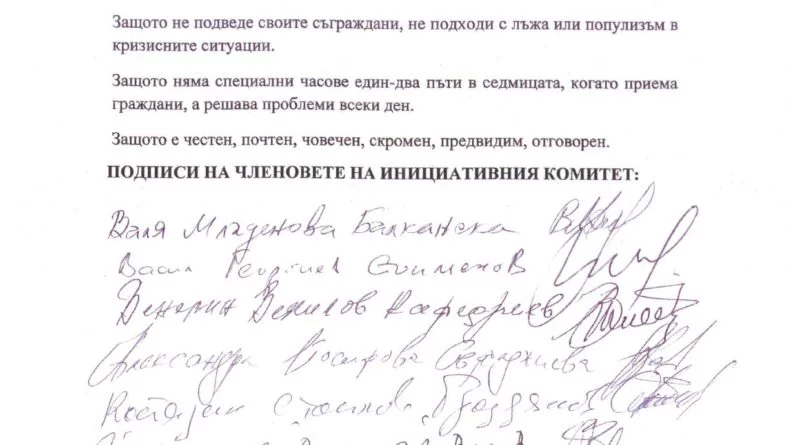 Защото не подведе своите съграждани, не подходи с лъжа или популизъм в
кризисните ситуации.
Защото няма специални часове един-два пъти в седмицата, когато приема
граждани, а решава проблеми всеки ден.
Защото е честен, почтен, човечен, скромен, предвидим, отговорен.
ПОДПИСИ НА ЧЛЕНОВЕТЕ НА ИНИЦИАТИВНИЯ КОМИТЕТ:
Валя Младенова Балканска
Васил Георгиев
Венелин
Александра
Стоилов